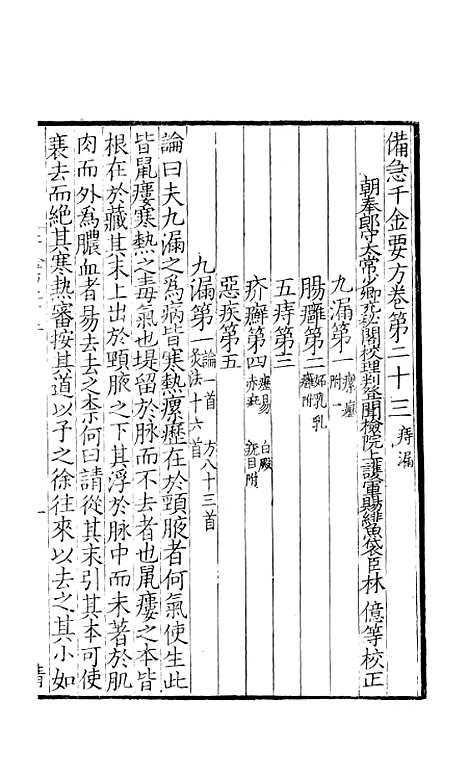 備急千金要方卷第二十三 痔漏
朝奉郎守太常少卿充祕閣校理判登聞檢院上護軍賜緋魚袋臣林 億等校正
九漏第一 瘰癧附
腸癰第二 妬乳乳癰附
五痔第三
疥癬第四 癧易 白殿 赤疵 疣目附
惡疾第五
九漏第一 論一首 方八十三首 灸法十六首
論曰夫九漏之爲病皆寒熱瘰癧在於頸腋者何氣使生此
皆鼠瘻寒熱之毒氣也堤留於脉而不去者也鼠瘻之本皆
根在於藏其末上出於頸腋之下其浮於脉中而未著於肌
肉而外爲膿血者易去去之柰何曰請從其末引其本可使
衰去而絶其寒熱審按其道以子之徐往來以去之其小如
一